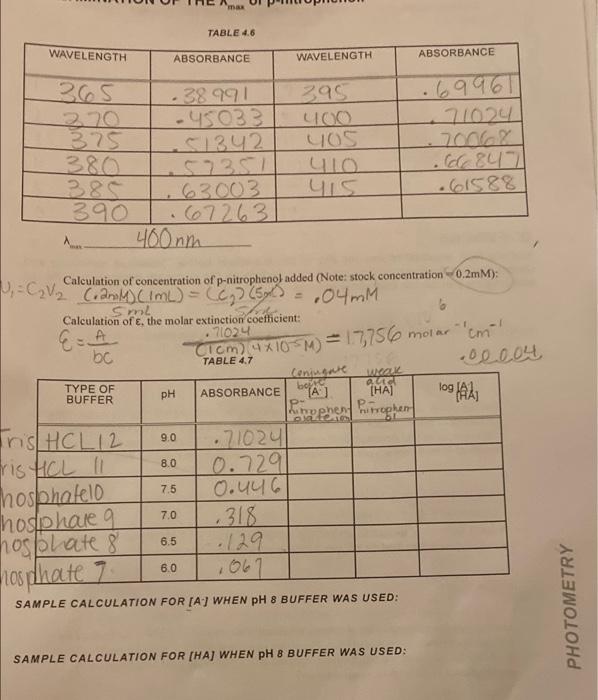 OF THE λmax of p-nitrophenol
TABLE 4.6
WAVELENGTH ABSORBANCE WAVELENGTH ABSORBANCE
365 .38991 395 .69961
370 .45033 400 .71024
375 .51342 405 .70068
380 .57351 410 .66847
385 .63003 415 .61588
390 .67263
λmax 400nm
Calculation of concentration of p-nitrophenol added (Note: stock concentration = 0.2mM):
V1=C2V2 (.2mM)(1mL) = (C2)(5mL) = .04mM
5mL 5mL
Calculation of ε, the molar extinction coefficient:
ε = A/bc .71024/(1cm)(4x10-5M) = 17,756 molar-1cm-1
.00004
TABLE 4.7
TYPE OF BUFFER pH ABSORBANCE conjugate base [A-] p- weak acid [HA] p- log [A-]/[HA]
Tris HCL 12 9.0 .71024
ris HCL 11 8.0 0.729
hosphate 10 7.5 0.446
hosphate 9 7.0 .318
hosphate 8 6.5 .129
hosphate 7 6.0 .067
SAMPLE CALCULATION FOR [A-] WHEN pH 8 BUFFER WAS USED:
SAMPLE CALCULATION FOR [HA] WHEN pH 8 BUFFER WAS USED:
PHOTOMETRY